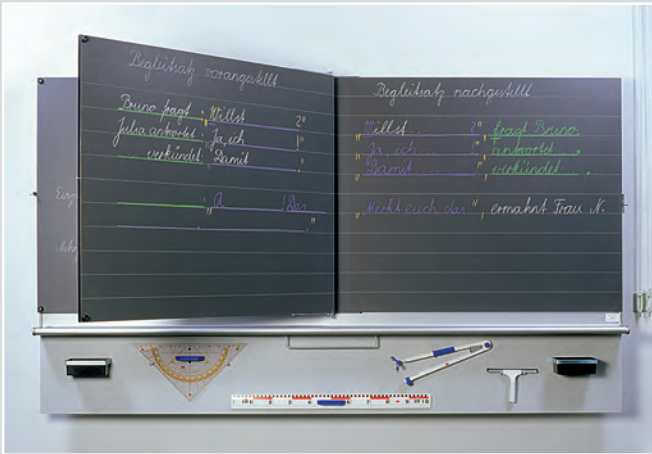 Begleitsatz vorangestellt
Bruno fragt: „Willst ?“
Julia antwortet: „Ja, ich !“
... verkündet: „Damit .“
: „A ! Das
. .“
Begleitsatz nachgestellt
„Willst ... ?“, fragt Bruno.
„Ja, ich ... !“, antwortet .
„Damit ...“, verkündet .
„Merkt euch das“, ermahnt Frau N.